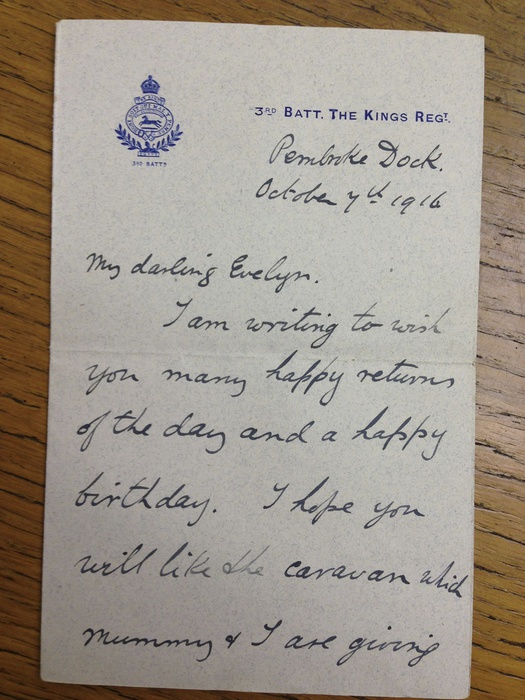 3RD BATT.
3RD BATT. THE KINGS REGT.
Pembroke Dock.
October 7th 1916
My darling Evelyn.
I am writing to wish
you many happy returns
of the day and a happy
birthday. I hope you
will like the caravan which
Mummy & I are giving